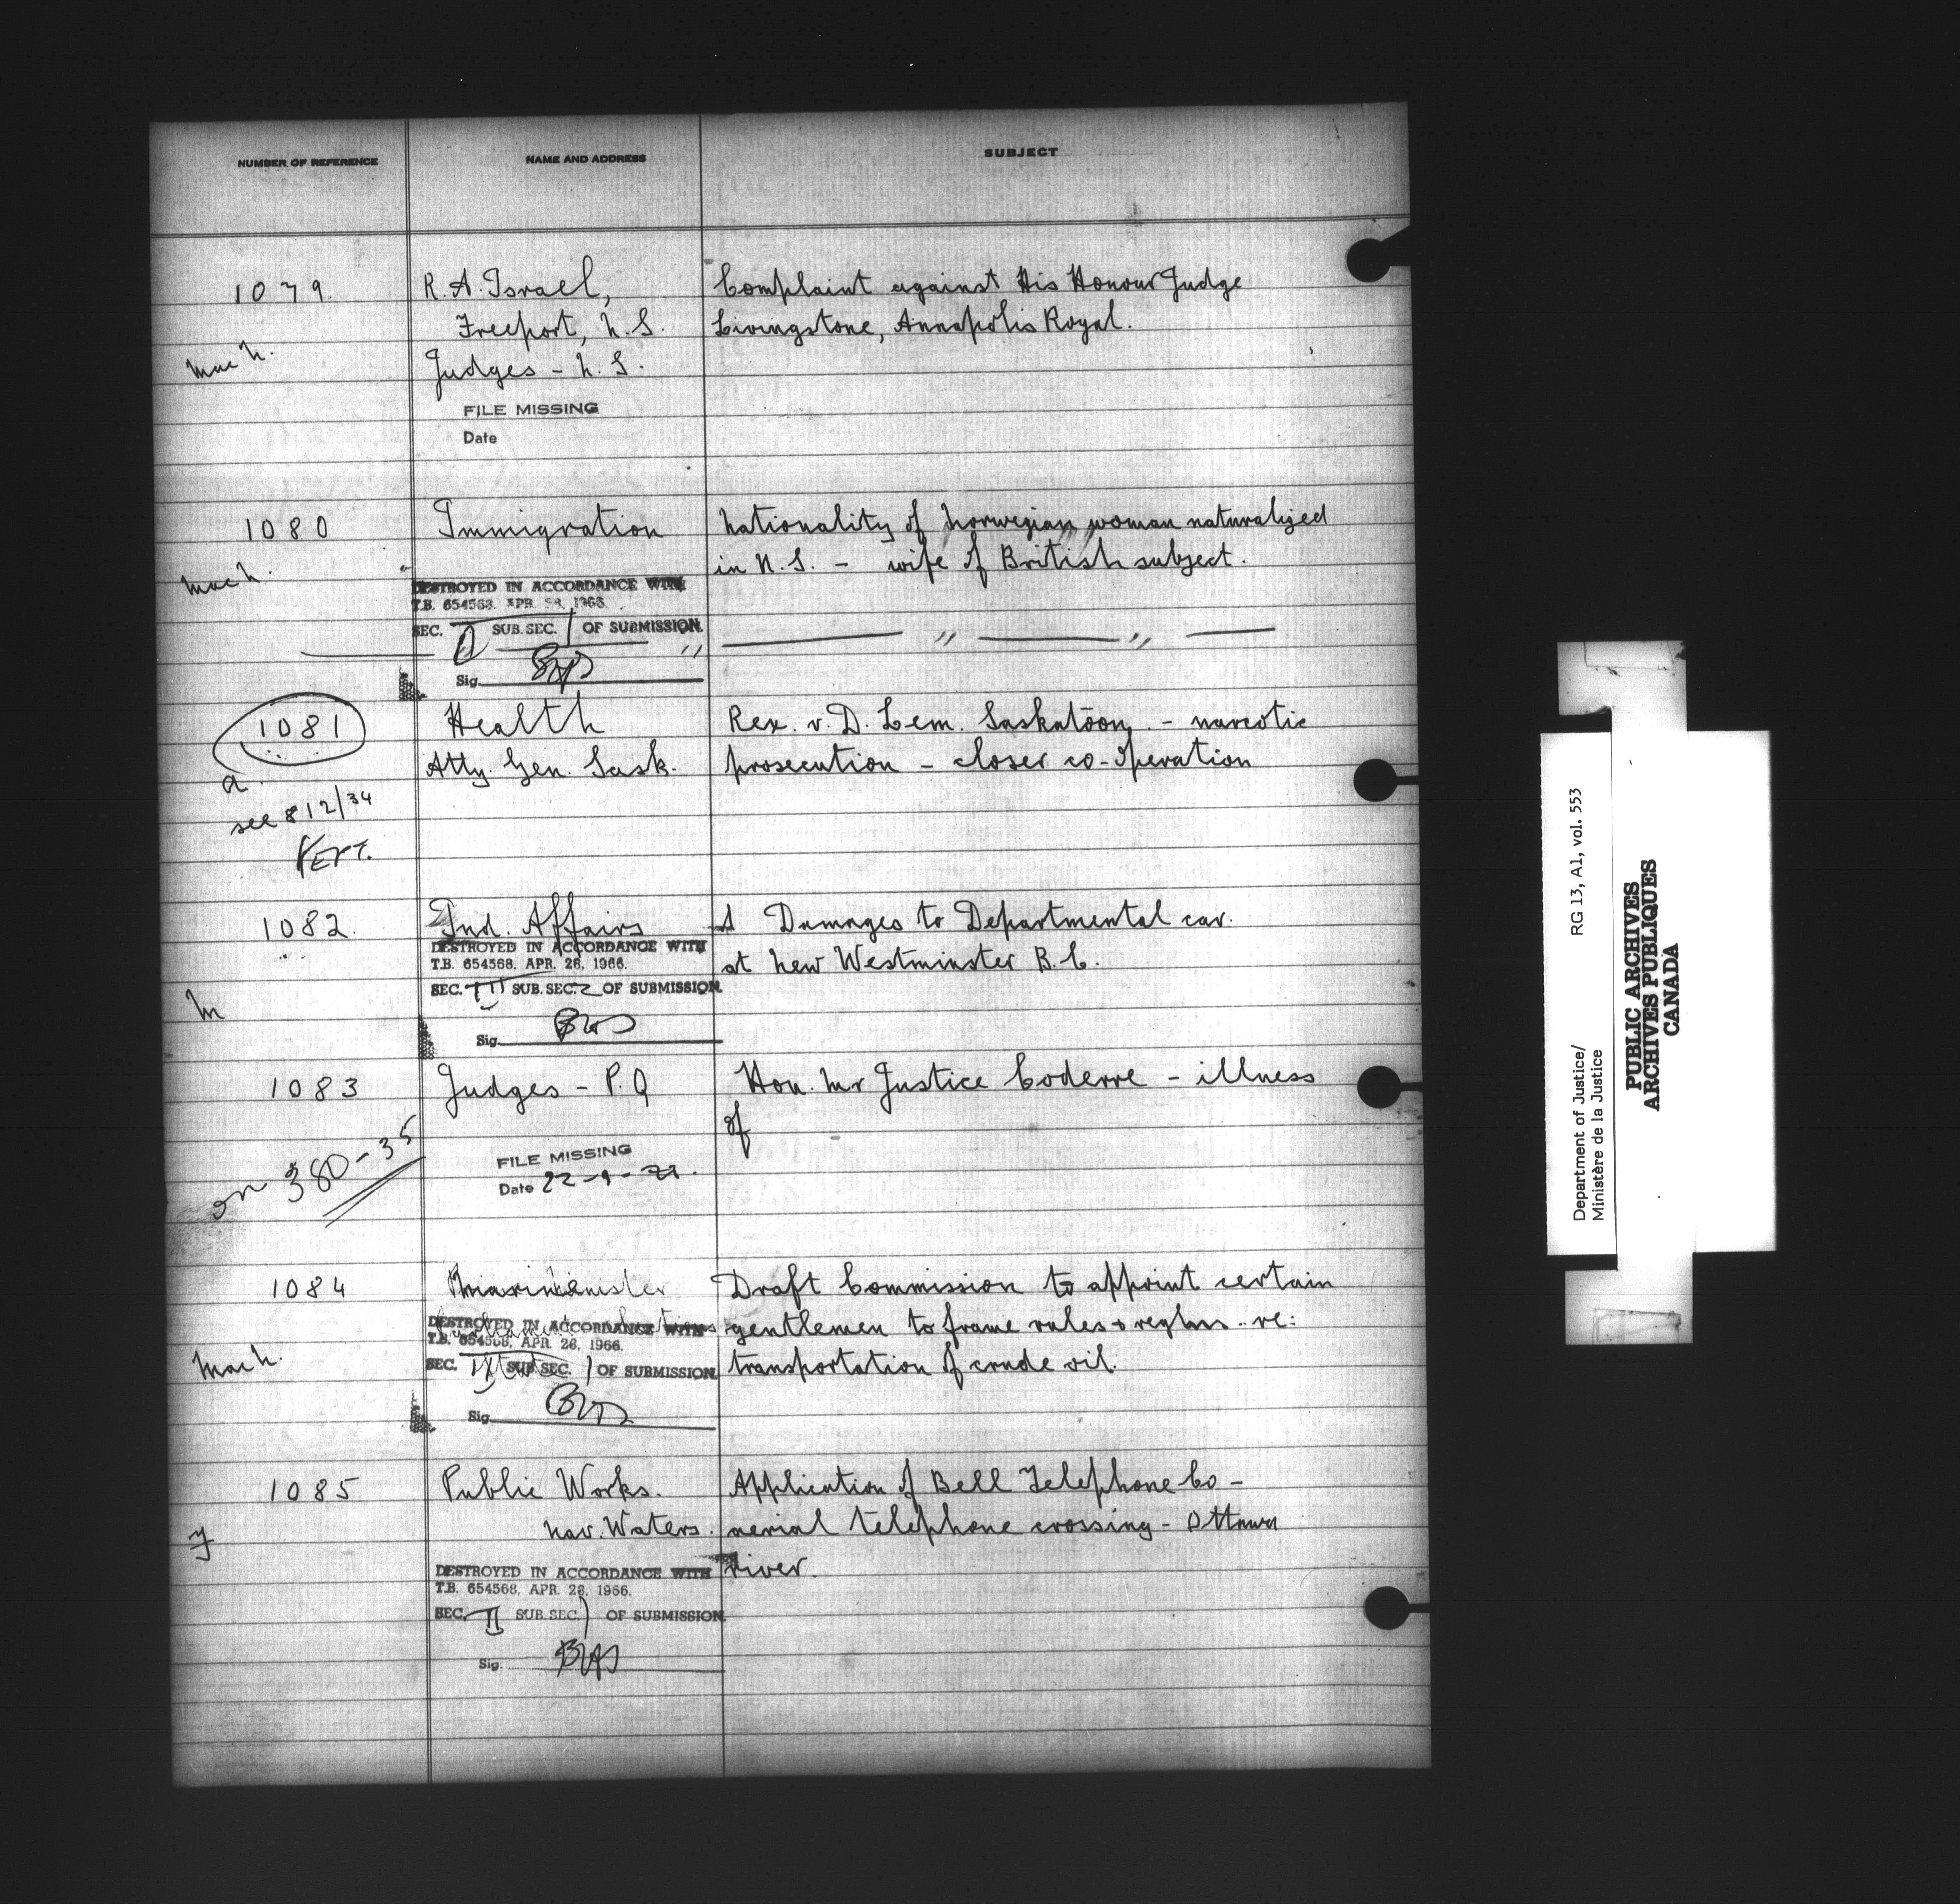 NUMBER OF REFERENCE NAME AND ADDRESS SUBJECT
1079. R. A. Israel, Complaint against His Honour Judge
Freeport, N.S. Livingstone, Annapolis Royal.
Mac N. Judges - N.S.
FILE MISSING
Date
1080 Immigration Nationality of Norwegian woman naturalized
in N.S. - wife of British subject.
Mac N.
DESTROYED IN ACCORDANCE WITH
T.B. 654568. APR. 28, 1966.
SEC. SUB. SEC. 1 OF SUBMISSION
" " "
Sig.
1081 Health Rex. v. D. Lem. Saskatoon - narcotic
a. Atty. Gen. Sask. prosecution - closer co-operation
see 812/34
1082. Ind. Affairs Damages to Departmental car.
DESTROYED IN ACCORDANCE WITH
T.B. 654568, APR. 28, 1966. at New Westminster B.C.
SEC. III SUB. SEC. 2 OF SUBMISSION
M
Sig.
1083 Judges - P.Q Hon. Mr Justice Coderre - illness
of
on 380-35
FILE MISSING
Date 22-9-
1084 Draft Commission to appoint certain
DESTROYED IN ACCORDANCE WITH gentlemen to frame rules + reglns.. re:
T.B. 654568, APR. 28, 1966.
Mac N. SEC. SUB SEC. 1 OF SUBMISSION transportation of crude oil.
Sig.
1085 Public Works. Application of Bell Telephone Co -
Nav. Waters. aerial telephone crossing - Ottawa
river.
DESTROYED IN ACCORDANCE WITH
T.B. 654568, APR. 28, 1966.
SEC. II SUB. SEC. 1 OF SUBMISSION
Sig.
Department of Justice/ RG 13, A1, vol. 553
Ministère de la Justice
PUBLIC ARCHIVES
ARCHIVES PUBLIQUES
CANADA